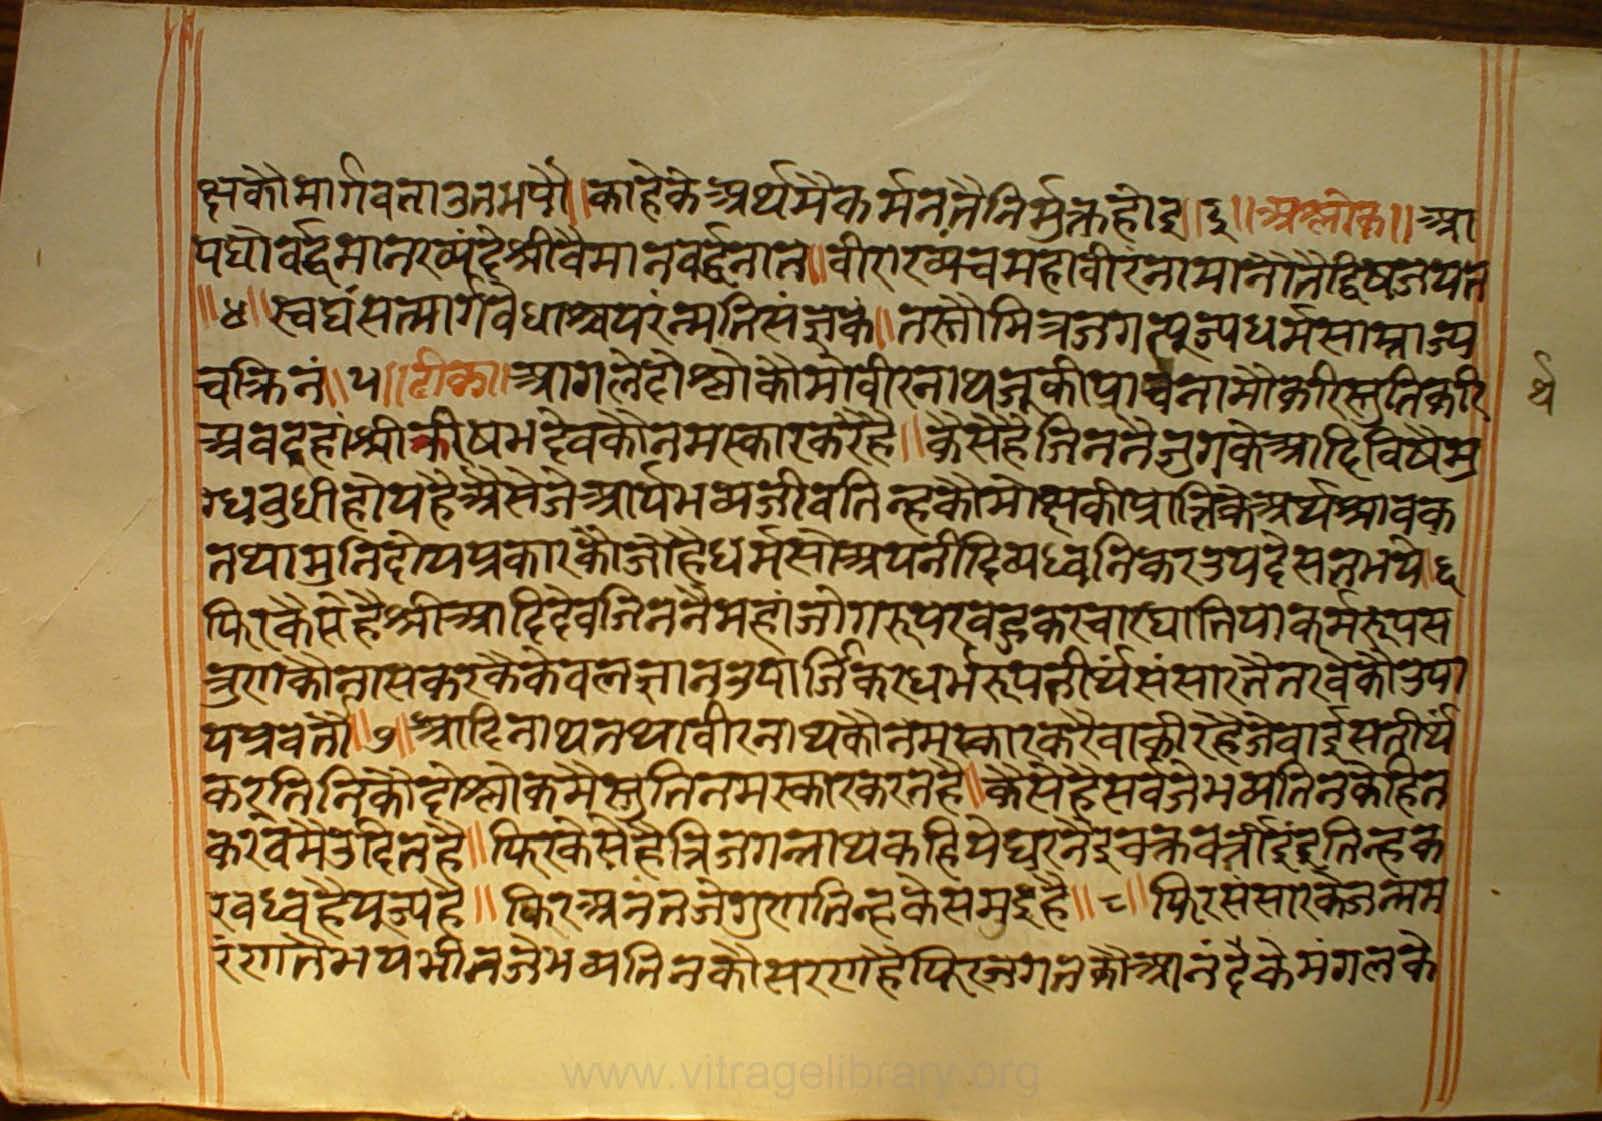 क्षकौमार्गवताउतभयौ॥काहेकेअर्थमैकर्मनतैनिर्मुक्तहोइ॥३॥अश्लोक॥आ
पघौवर्द्धमानरव्यंदेश्रीवैमानवर्द्धनात॥वीराख्यचमहावीरंनामानौतैद्विषजयत
॥४॥स्वयंसत्मार्गवैधाश्चपरंन्मतिसंजुकं॥तस्तौमित्रजगत्पूज्यधर्मसाम्राज्य
चक्रिनं॥५॥टीका॥आगलेदोश्लोकौमौवीरनाथजुकीपाचनामौकरिस्तुतिकरि
अवइहांश्रीऋीषभदेवकौनमस्कारकरैहै॥कैसेहैजिननैजुगकेआदिविषैमु
ग्धबुधीहोयहैऔसेजेआर्यभव्यजीवतिन्हकौमोक्षकीप्राप्तिकेअर्थश्रावक
तथामुनिदोयप्रकारकौजोहैधर्मसोअपनीदिव्यध्वनिकरउपदेसतभये॥६
फिरकैसेहैश्रीआदिदेवजिननैमहांजोगरूपखड्गकरचारघातियाकर्मरूपस
त्रुणकौनासकरकैकेवलज्ञानउपार्जिकरधर्मरूपतीर्थसंसारतैतरवेकौउपा
यप्रवर्तौ॥७॥आदिनाथतथावीरनाथकौनमस्कारकरैवाकीरहैजेवाईसतीर्थं
करतिनिकौदोश्लोकमैस्तुतिनमस्कारकरतहै॥कैसेहैसर्वजेभव्यतिनकेहित
करवेमैउदितहै॥फिरकैसेहैत्रिजगन्नाथकहियेधरनेंइचक्रवर्त्तीइंद्रतिन्हक
रवध्वहैपूज्यहै॥फिरअनंतजेगुणतिन्हकेसमुद्रहै॥८॥फिरसंसारकेजन्मम
रंणतैभयभीतजेभव्यतिनकौसरणहैफिरजगतकौआनंदकेमंगलके
र्थ
www.vitragelibrary.org